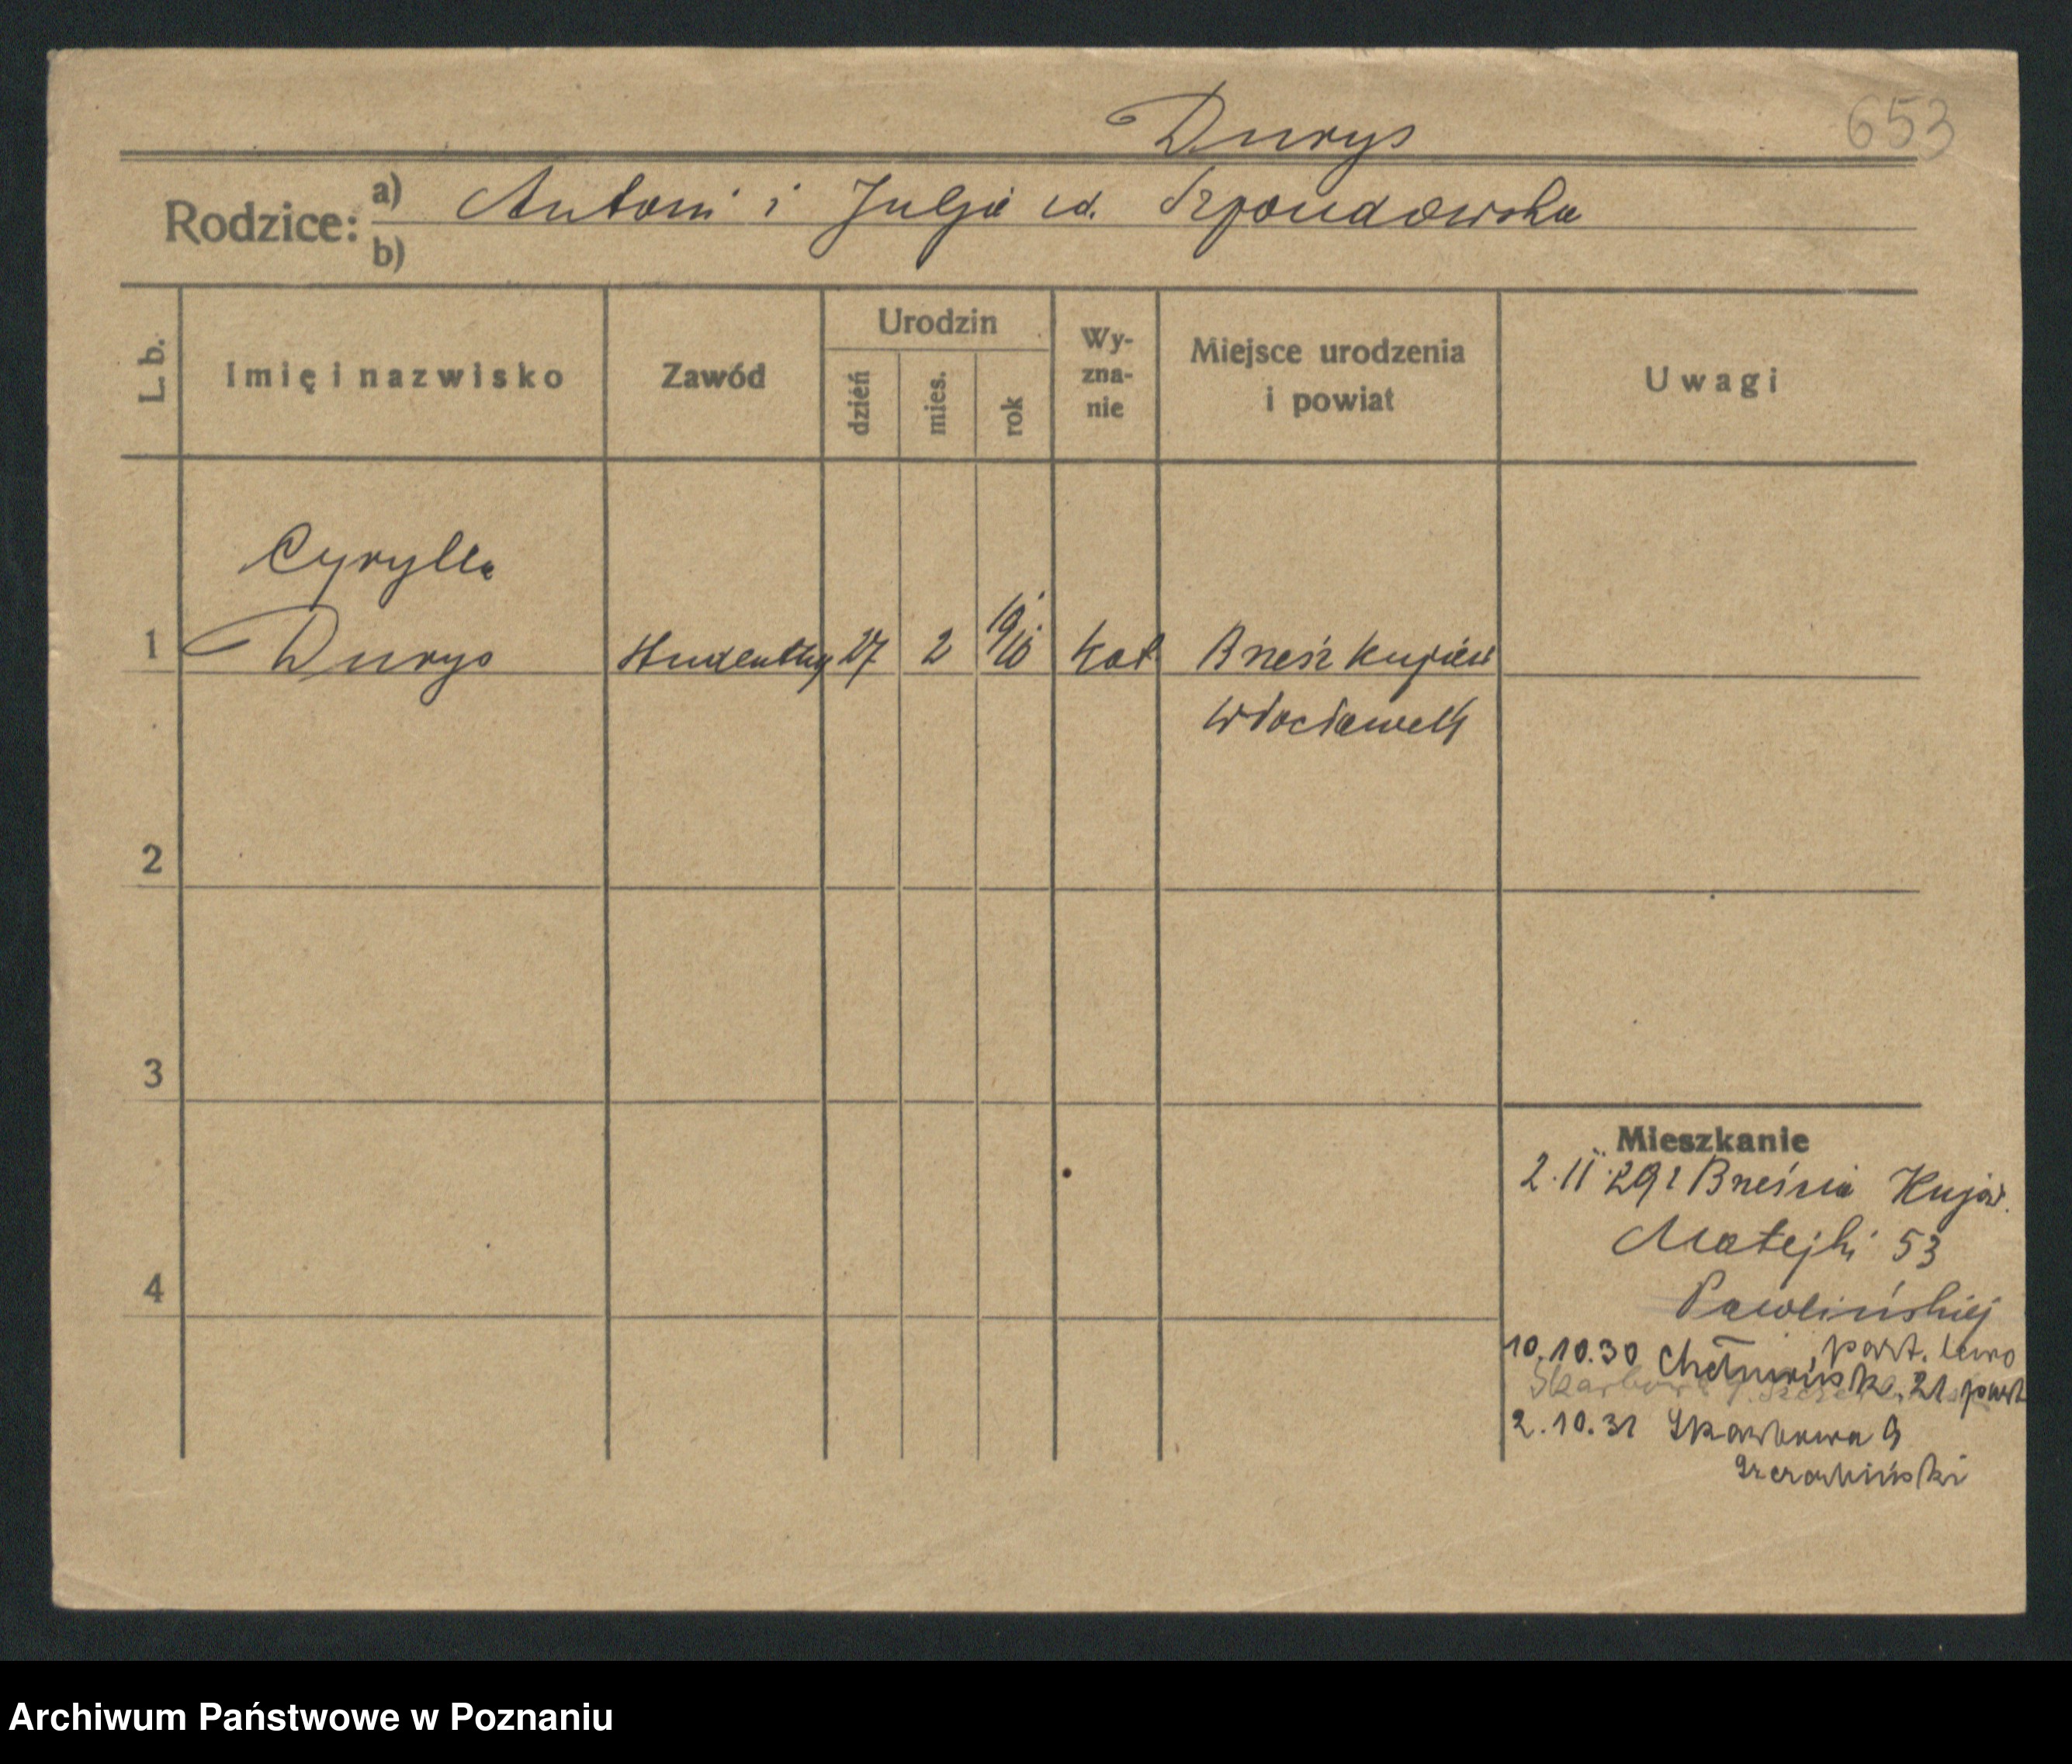 Durys
653
Rodzice: a) Antoni i Julja z d. Szpondowska
b)
L. b.
Imię i nazwisko
Zawód
Urodzin
dzień
mies.
rok
Wy-
zna-
nie
Miejsce urodzenia
i powiat
Uwagi
Cyrylla
1 Durys Studentka 27 2 19/10 kat Brześć kujaw
Włocławek
2
3
4
Mieszkanie
2.11.29 z Brześcia Kujaw.
Matejki 53
Pawlińskiej
, part. lewo
10.10.30 Chełmińsk. 21 part
Skarbowa
2.10.31 Skarbowa 9
Archiwum Państwowe w Poznaniu